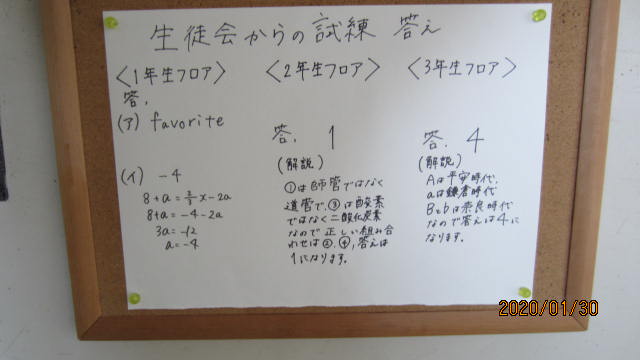 生徒会からの試練 答え
〈1年生フロア〉
答.
(ア) favorite
(イ) -4
8+a=2/1x-2a
8+a=-4-2a
3a=-12
a=-4
〈2年生フロア〉
答. 1
(解説)
①は師管ではなく
道管で、③は酸素
ではなく二酸化炭素
なので正しい組み合
わせは②、④、答えは
1になります。
〈3年生フロア〉
答. 4
(解説)
Aは平安時代、
aは鎌倉時代
B、bは奈良時代
なので答えは4に
なります。
2020/01/30